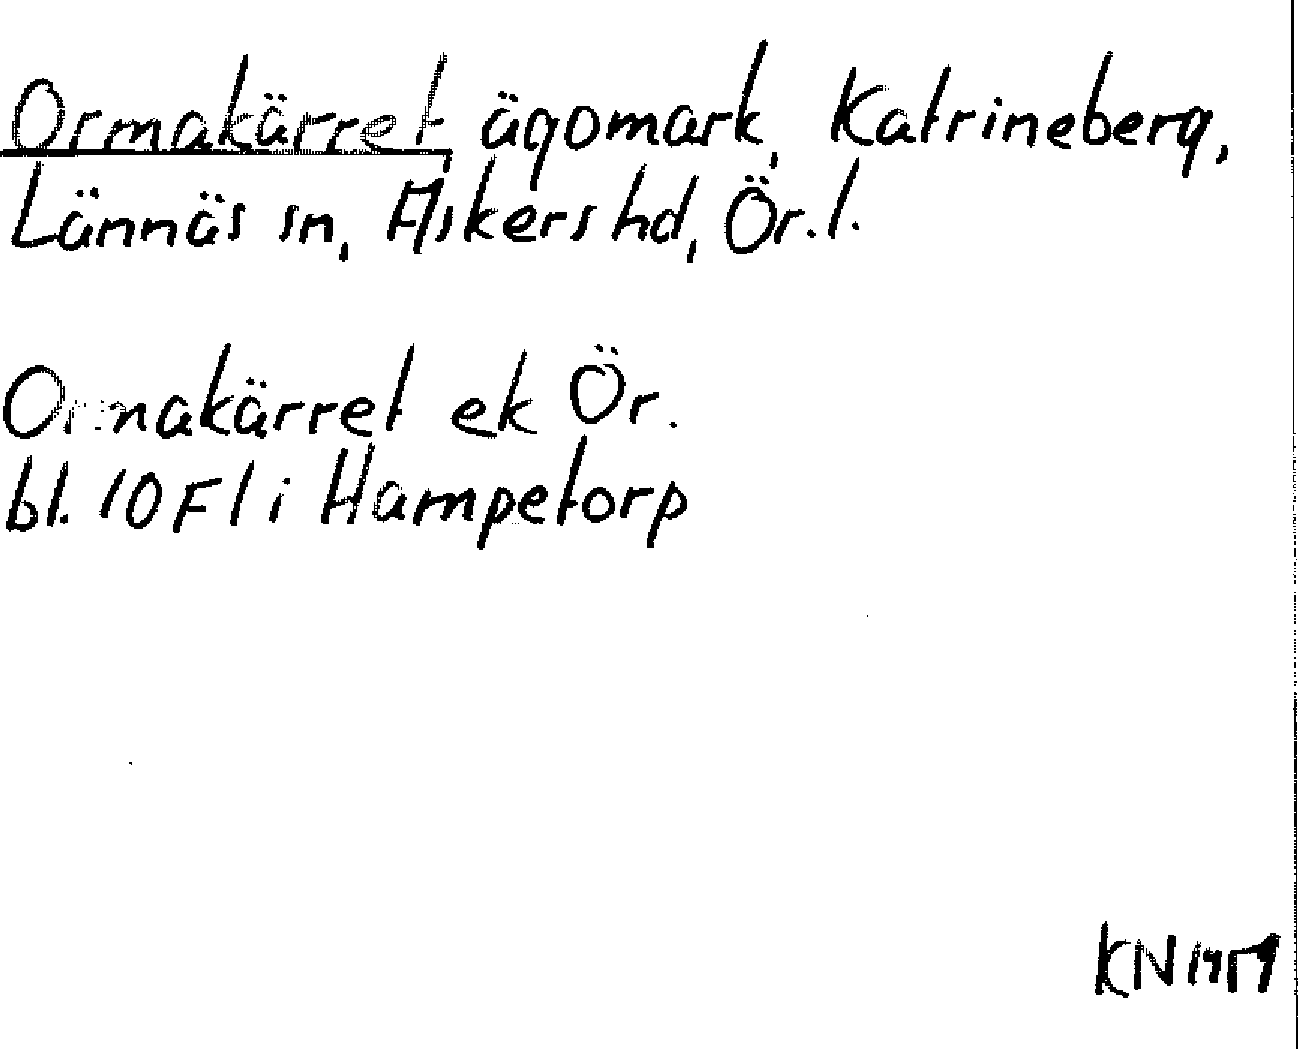 Ormakärret, ägomark, Katrineberg,
Lännäs sn, Askers hd, Ör.l.
Ormakärret ek Ör.
bl. 10 F l i Hampetorp
KN